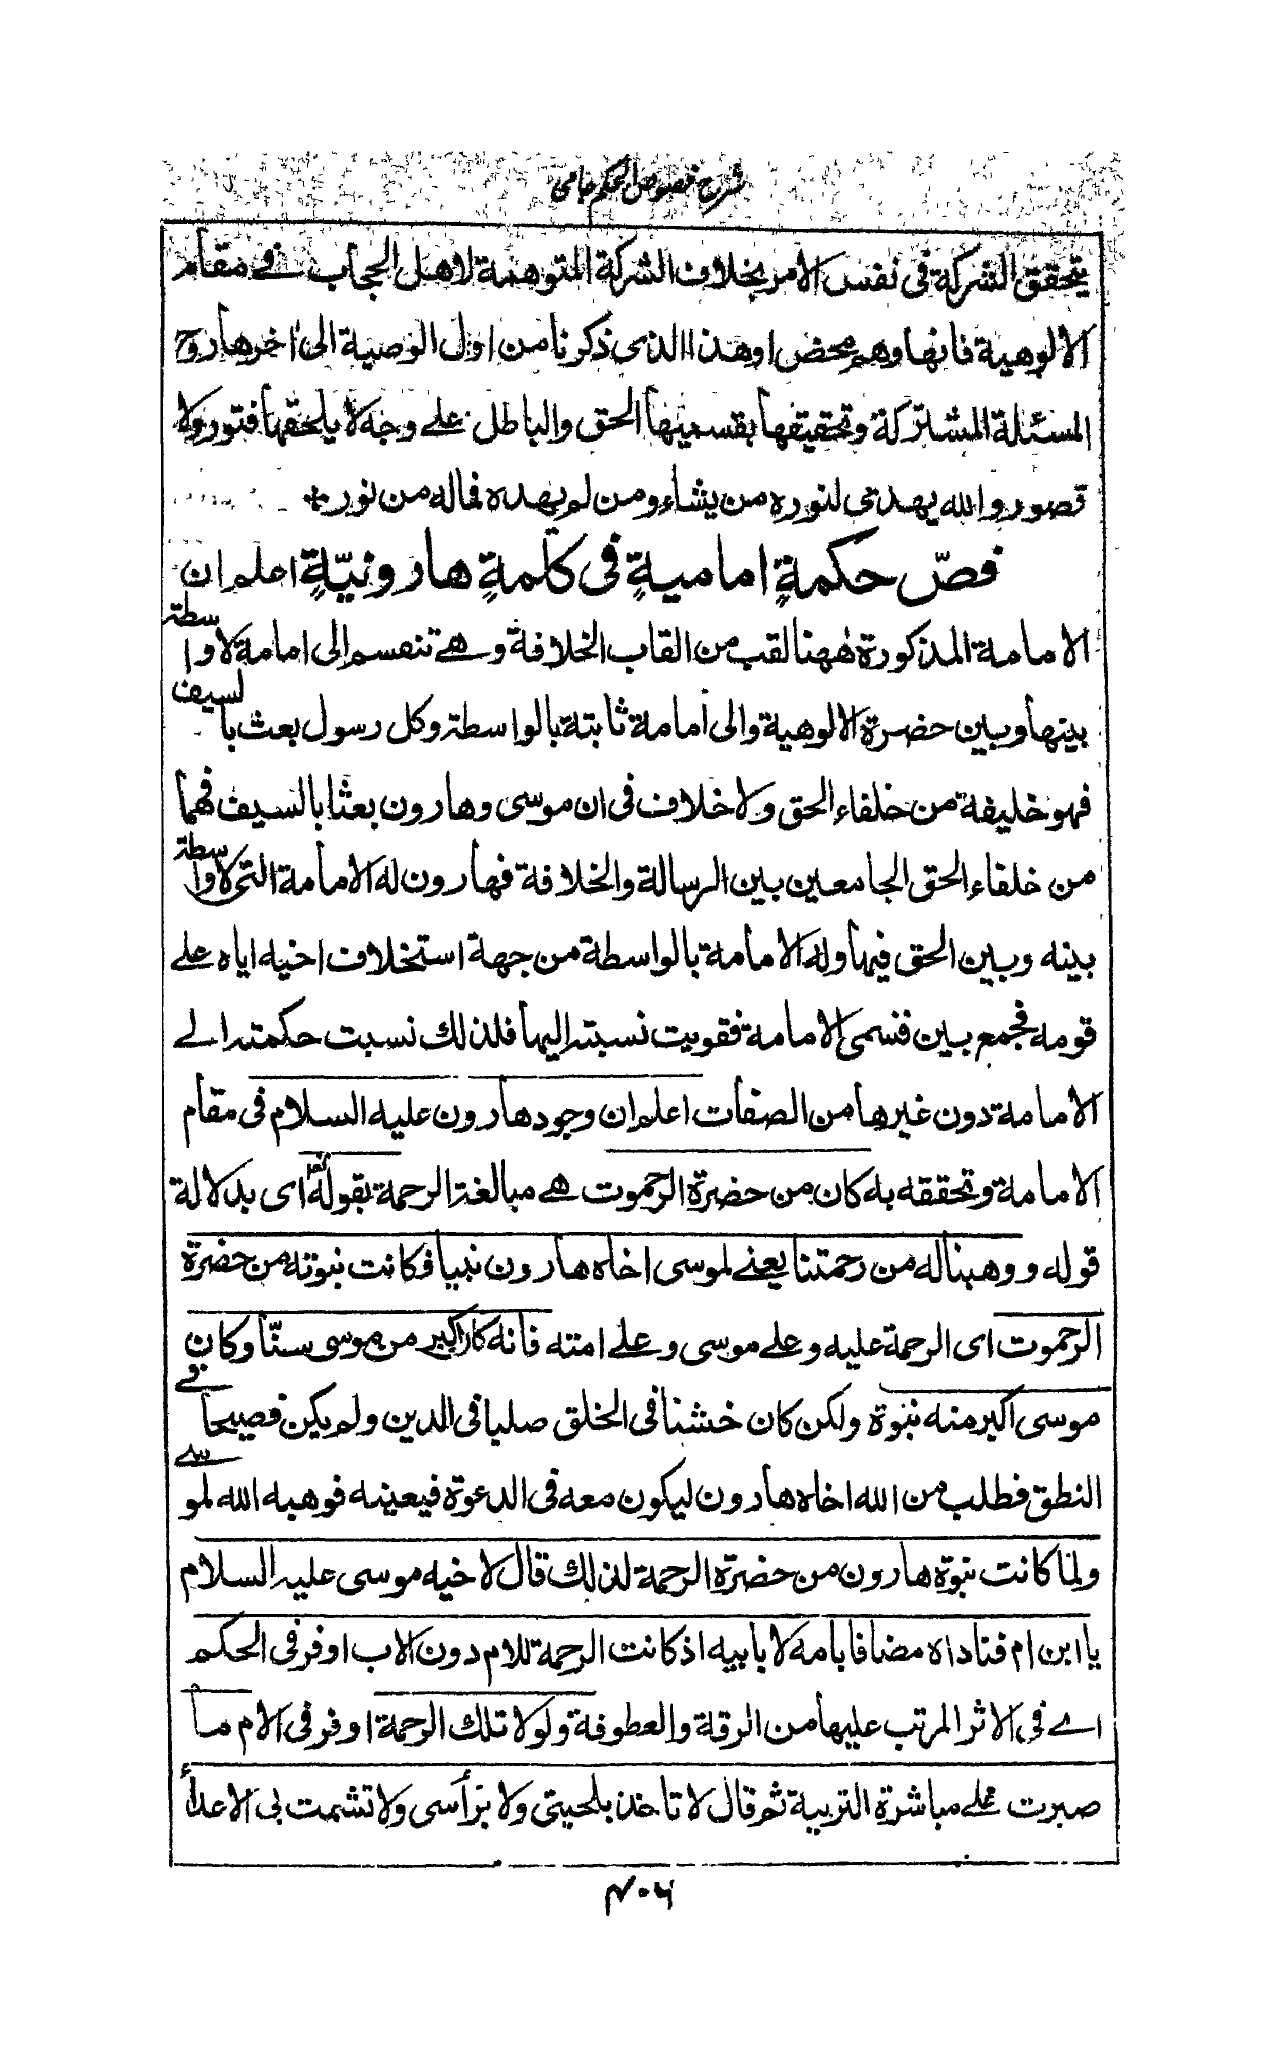 شرح فصوص الحكم جامى
يتحقق الشركة فى نفس الامر بخلاف الشركة المتوهمة لاهل الحجاب فے مقام
الالوهية فانها وهم محض او هذا الذى ذكرنا من اول الوصية الى اخرها روح
المسئلة المشتركة وتحقيقها بقسميها الحق والباطل علے وجه لا يلحقها فتور ولا
قصور والله يهدى لنوره من يشاء ومن لم يهده فما له من نور
فصّ حكمةٍ اماميةٍ فى كلمةٍ هارونيّةٍ اعلم ان
الامامة المذكورة ههنا لقب من القاب الخلافة وهے تنقسم الى امامة لا واسطة
بينها وبين حضرة الالوهية والى امامة ثابتة بالواسطة وكل رسول بعث بالسيف
فهو خليفة من خلفاء الحق ولا خلاف فى ان موسى وهارون بعثا بالسيف فهما
من خلفاء الحق الجامعين بين الرسالة والخلافة فهارون له الامامة التى لا واسطة
بينه وبين الحق فيها وله الامامة بالواسطة من جهة استخلاف اخيه اياه علے
قومه فجمع بين قسمى الامامة فقويت نسبته اليها فلذلك نسبت حكمته الے
الامامة دون غيرها من الصفات اعلم ان وجود هارون عليه السلام فى مقام
الامامة وتحققه به كان من حضرة الرحموت هے مبالغة الرحمة بقوله تعم اى بدلالة
قوله ووهبنا له من رحمتنا يعنے لموسى اخاه هارون نبيا فكانت نبوته من حضرة
الرحموت اى الرحمة عليه وعلے موسى وعلے امته فانه كان اكبر من موسى سنّا وكان
موسى اكبر منه نبوة ولكن كان خشنا فى الخلق صلبا فى الدين ولم يكن فصيحا فے
النطق فطلب من الله اخاه هارون ليكون معه فى الدعوة فيعينه فوهبه الله لموسے
ولما كانت نبوة هارون من حضرة الرحمة لذلك قال لاخيه موسى عليه السلام
يا ابن ام فناداه مضافا بامه لا بابيه اذ كانت الرحمة للام دون الاب اوفر فى الحكم
اے فى الاثر المرتب عليها من الرقة والعطوفة ولولا تلك الرحمة اوفر فى الام ما
صبرت علے مباشرة التربية ثم قال لا تاخذ بلحيتى ولا برأسى ولا تشمت بى الاعداء